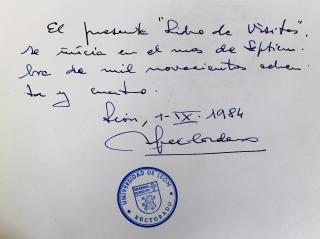 El presente "Libro de Visitas",
se inicia en el mes de Septiem-
bre de mil novecientos ochen-
ta y cuatro.
León, 1-IX-1984
UNIVERSIDAD DE LEÓN
RECTORADO